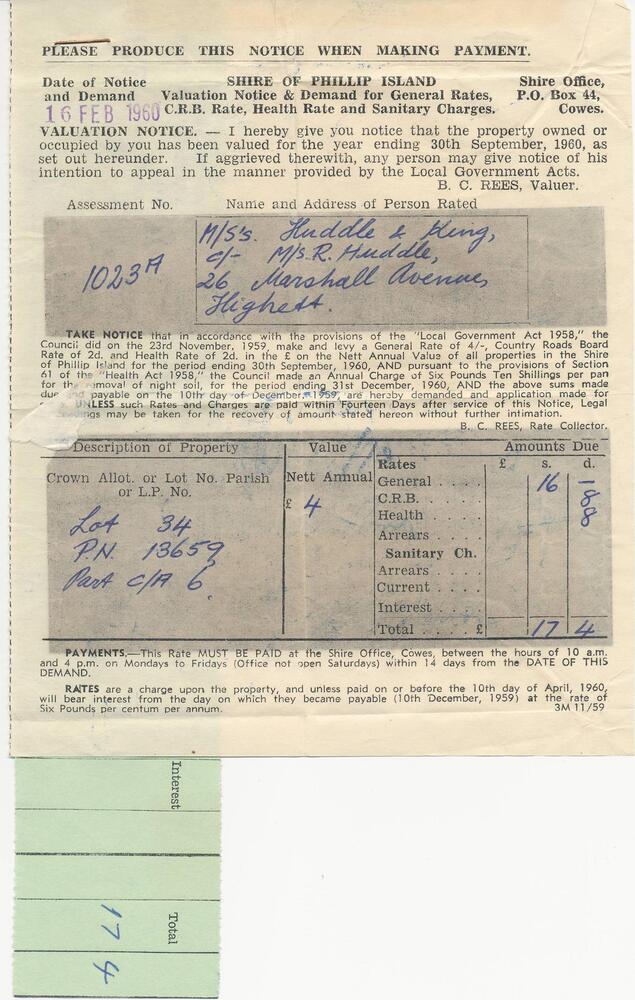 PLEASE PRODUCE THIS NOTICE WHEN MAKING PAYMENT.
Date of Notice and Demand
16 FEB 1960
SHIRE OF PHILLIP ISLAND
Valuation Notice & Demand for General Rates,
C.R.B. Rate, Health Rate and Sanitary Charges.
Shire Office,
P.O. Box 44,
Cowes.
VALUATION NOTICE. — I hereby give you notice that the property owned or
occupied by you has been valued for the year ending 30th September, 1960, as
set out hereunder. If aggrieved therewith, any person may give notice of his
intention to appeal in the manner provided by the Local Government Acts.
B. C. REES, Valuer.
Assessment No.
Name and Address of Person Rated
1023A
M/S's. Huddle & King,
c/- M/s. R. Huddle,
26 Marshall Avenue,
Highett.
TAKE NOTICE that in accordance with the provisions of the "Local Government Act 1958," the
Council did on the 23rd November, 1959, make and levy a General Rate of 4/-, Country Roads Board
Rate of 2d. and Health Rate of 2d. in the £ on the Nett Annual Value of all properties in the Shire
of Phillip Island for the period ending 30th September, 1960, AND pursuant to the provisions of Section
61 of the "Health Act 1958," the Council made an Annual Charge of Six Pounds Ten Shillings per pan
for the removal of night soil, for the period ending 31st December, 1960, AND the above sums made
due payable on the 10th day of December, 1959, are hereby demanded and application made for
UNLESS such Rates and Charges are paid within Fourteen Days after service of this Notice, Legal
may be taken for the recovery of amount stated hereon without further intimation.
B. C. REES, Rate Collector.
Description of Property
Crown Allot. or Lot No. Parish
or L.P. No.
Lot 34
P.N. 13659
Part C/A 6
Value
Nett Annual
£ 4
Amounts Due
Rates £ s. d.
General . . . . 16 -
C.R.B. . . . . 8
Health . . . . 8
Arrears . . . .
Sanitary Ch.
Arrears . . . .
Current . . . .
Interest . . . .
Total . . . . £ 17 4
PAYMENTS.—This Rate MUST BE PAID at the Shire Office, Cowes, between the hours of 10 a.m.
and 4 p.m. on Mondays to Fridays (Office not open Saturdays) within 14 days from the DATE OF THIS
DEMAND.
RATES are a charge upon the property, and unless paid on or before the 10th day of April, 1960,
will bear interest from the day on which they became payable (10th December, 1959) at the rate of
Six Pounds per centum per annum.
3M 11/59
Interest
Total
17 4